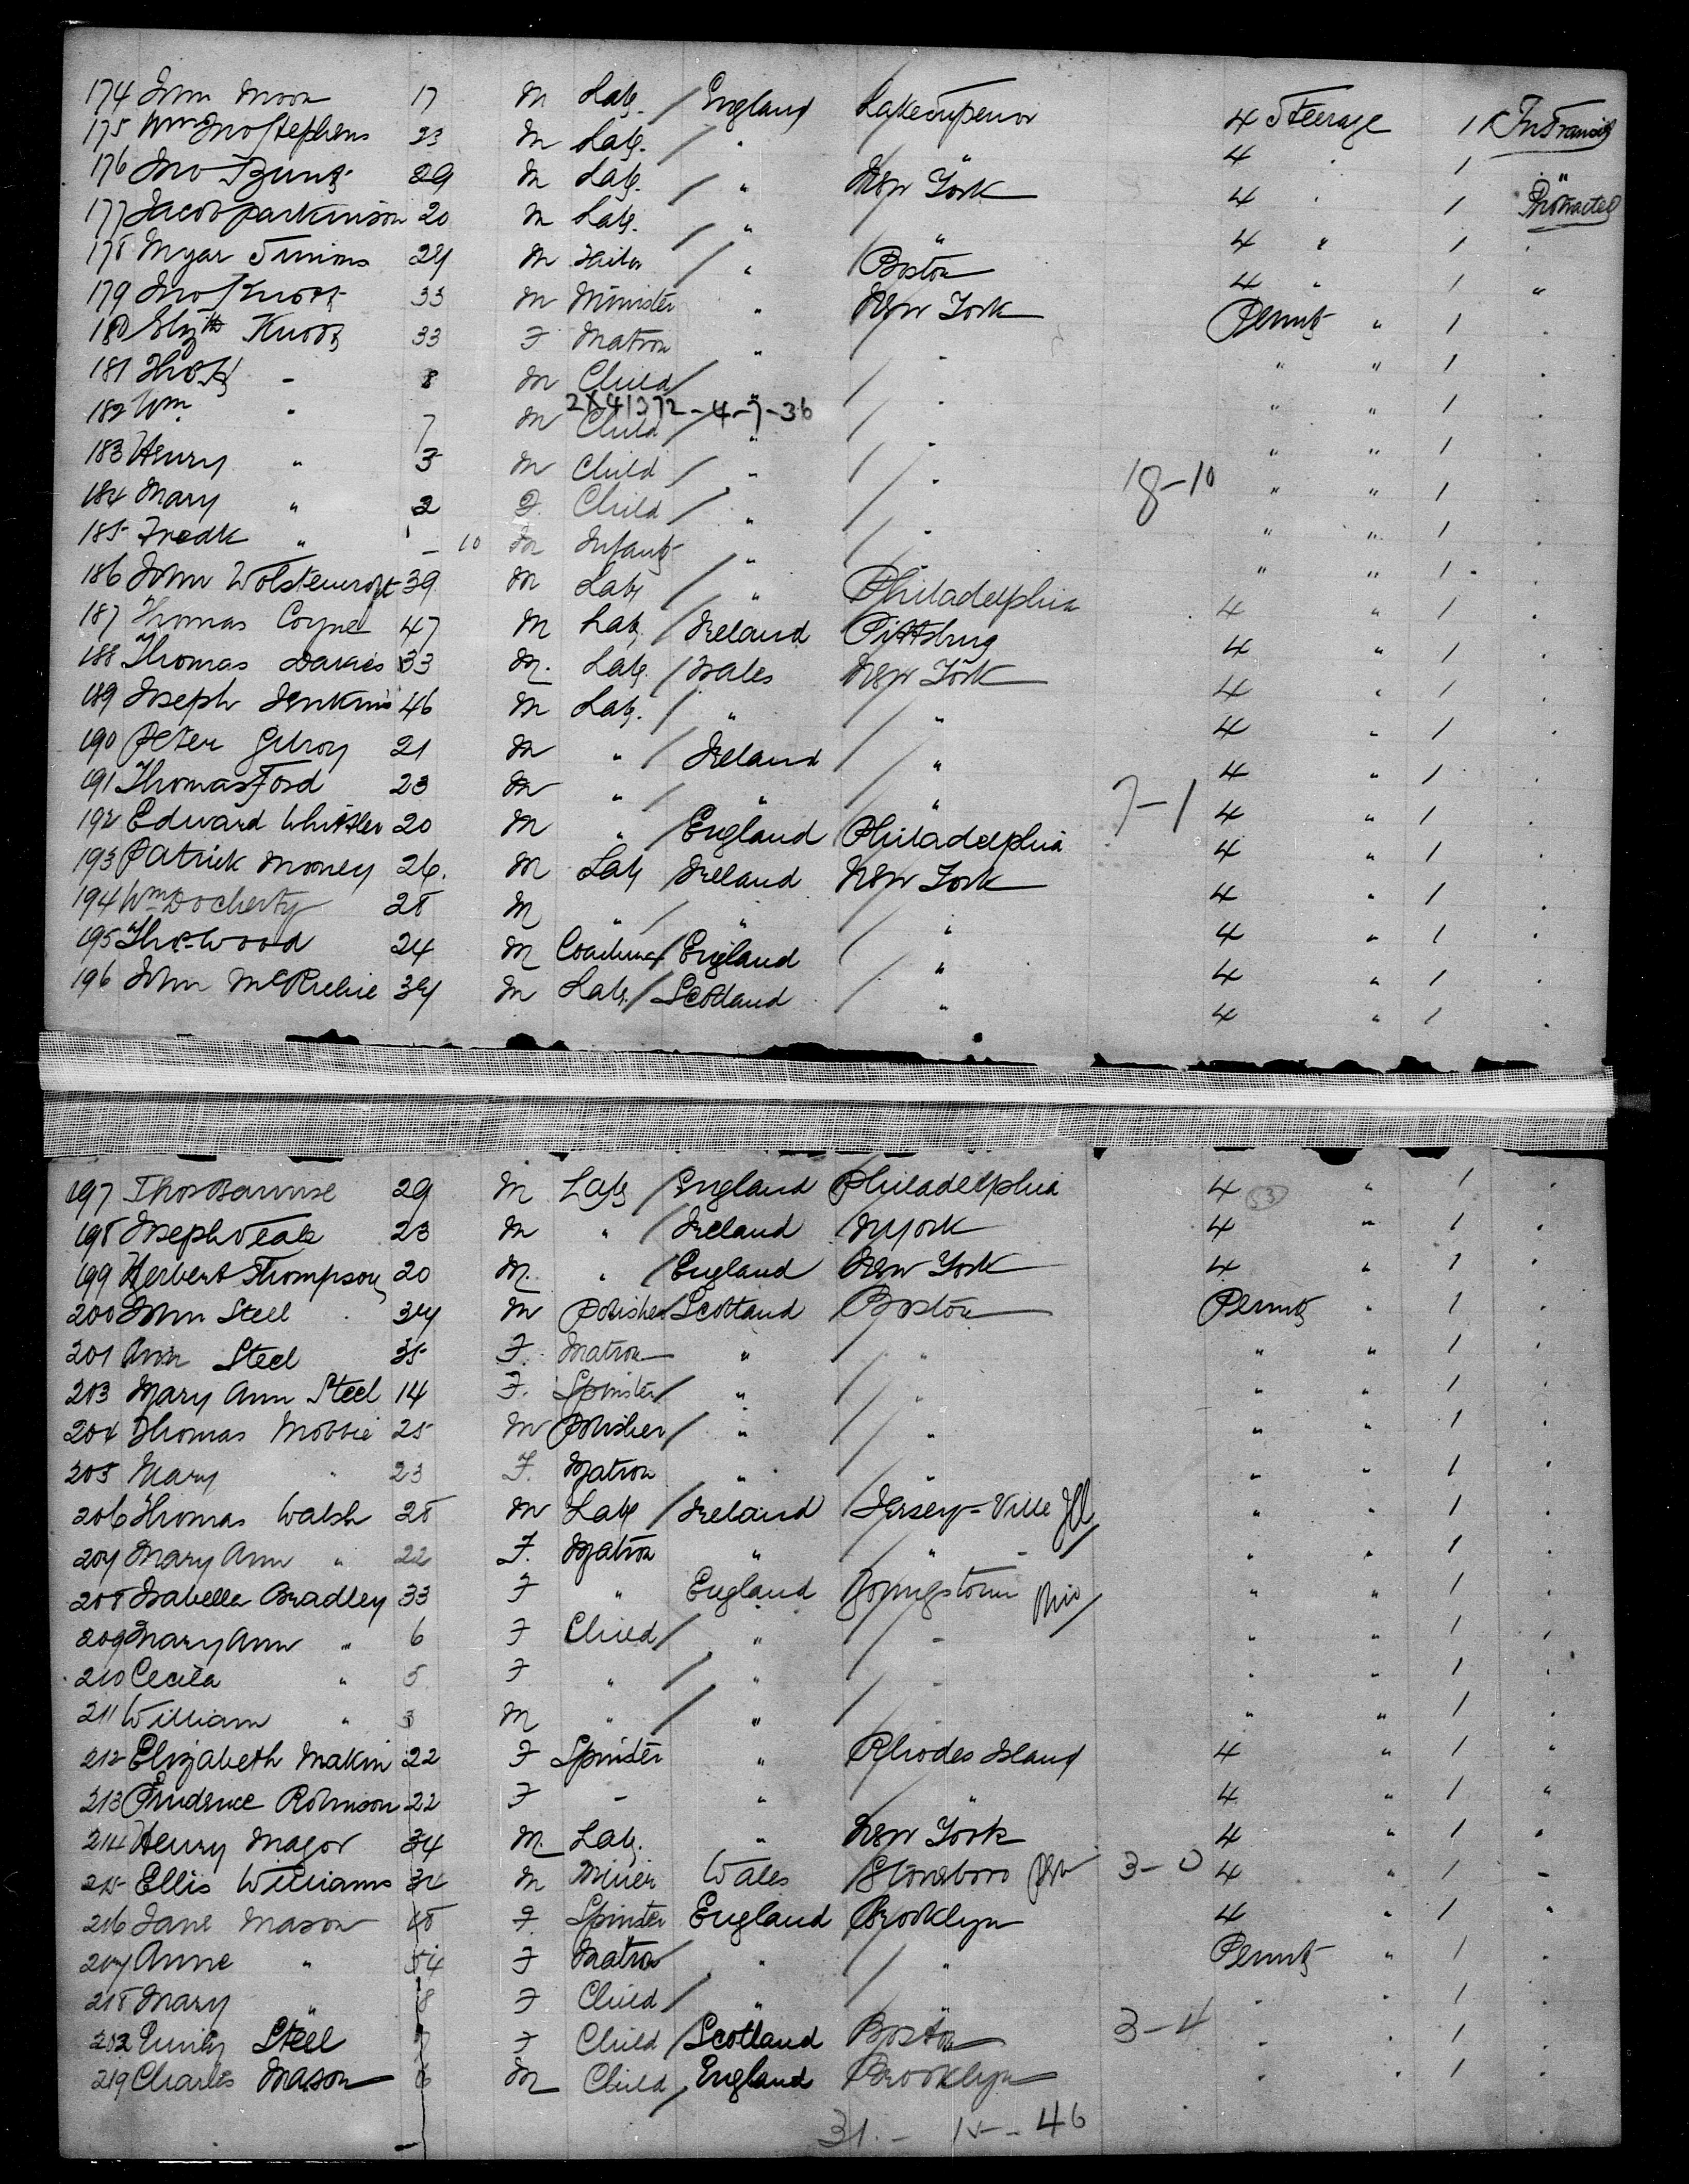 174 John Moon 17 M Lab. / England Lake Superior 4 Steerage 1 In Transit
175 Wm Jno Stephens 23 M Lab. / " " 4 " 1 "
176 Jno 29 M Lab. / " New York 4 " 1 Protracted
177 Jacob Parkinson 20 M Lab. / " / " 4 " 1 "
178 Simions 24 M / " Boston 4 " 1 "
179 Jno Knott 33 M Minister " New York Permit " 1 "
180 Elizth Knott 33 F Matron " / " " " 1 "
181 Thos " 8 M Child / " / " " " 1 "
2X41372-4-7-36
182 Wm " 7 M Child / " / " " " 1 "
183 Henry " 3 M Child / " / " " " 1 "
184 Mary " 2 F. Child / " / " 18-10 " " 1 "
185 Fredk " - 10 M Infant " / " " " 1 "
186 John Wolstencroft 39 M Lab / " Philadelphia 4 " 1 "
187 Thomas Coyne 47 M Lab / Ireland Pittsburg 4 " 1 "
188 Thomas Davies 33 M. Lab. / Wales New York 4 " 1 "
189 Joseph Jenkins 46 M Lab. / " / " 4 " 1 "
190 Peter Gilroy 21 M " / Ireland / " 4 " 1 "
191 Thomas Ford 23 M " / " / " 7-1 4 " 1 "
192 Edward Whittler 20 M " / England Philadelphia 4 " 1 "
193 Patrick Mooney 26. M Lab Ireland New York 4 " 1 "
194 Wm Docherty 28 M " / " / " 4 " 1 "
195 Thos Wood 24 M Coachman / England / " 4 " 1 "
196 John McRitchie 34 M Lab. / Scotland / " 4 " 1 "
197 Thos 29 M Lab / England Philadelphia 4 " 1 "
198 Joseph 23 M " / Ireland N York 4 " 1 "
199 Herbert Thompson 20 M. " / England New York 4 " 1 "
200 John Steel 34 M Polisher Scotland Boston Permit " 1 "
201 Ann Steel 35 F. Matron " / " " " 1 "
203 Mary Ann Steel 14 F. Spinster / " / " " " 1 "
204 Thomas Mobbie 25 M Polisher / " / " " " 1 "
205 Mary " 23 F. Matron " / " " " 1 "
206 Thomas Walsh 28 M Lab / Ireland / Jersey-Ville Ill " " 1 "
207 Mary Ann " 22 F. Matron " / " " " 1 "
208 Isabella Bradley 33 F " England Youngstown Ohio " " 1 "
209 Mary Ann " 6 F Child / " / " " " 1 "
210 Cecila " 5 F " / " / " " " 1 "
211 William " 3 M " / " / " " " 1 "
212 Elizabeth Makin 22 F Spinster " Rhodes Island 4 " 1 "
213 Prudence Robinson 22 F - " / " 4 " 1 "
214 Henry Magor 34 M. Lab. " New York 4 " 1 "
215 Ellis Williams 34 M Miner Wales Stoneboro 3-0 4 " 1 "
216 Jane Mason 18 F Spinster England Brooklyn 4 " 1 "
217 Anne " F Matron " / " Permit " 1 "
218 Mary " 8 F Child / " / " " " 1 "
202 Emily Steel F Child / Scotland Boston 3-4 " " 1 "
219 Charles Mason 6 M Child / England Brooklyn " " 1 "
31 - 15 - 46